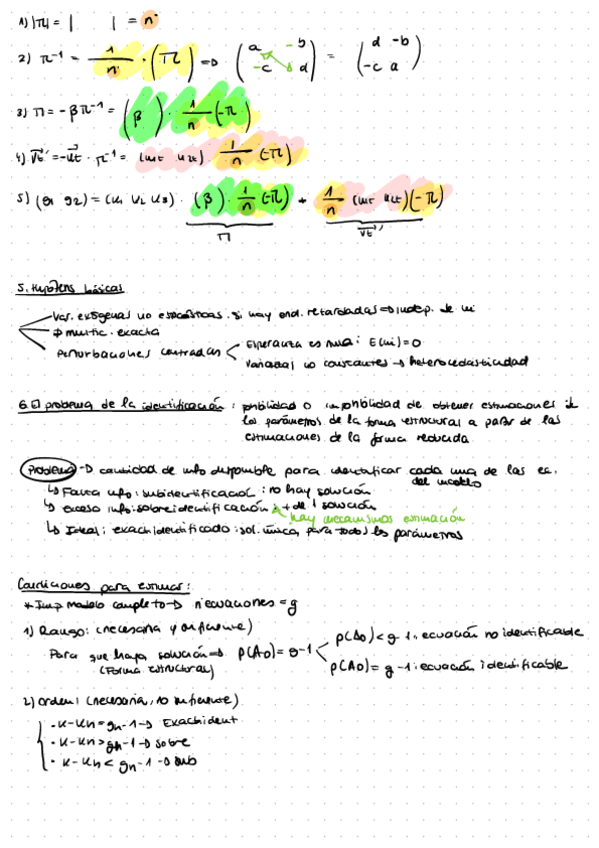 1) |π| = |     | = n
2) π⁻¹ = 1/n · (π) → (a -b -c d) = (d -b -c a)
3) Π = -βπ⁻¹ = (β) · 1/n (-π)
4) Vt' = -ut · π⁻¹ = (u1t u2t) 1/n (-π)
5) (g1 g2) = (u1 u2 u3) · (β) · 1/n (-π) + 1/n (u1t u2t)(-π)
Π Vt'
5. Hipótesis básicas
Var. exógenas no estocásticas. si hay end. retardadas → indep. de ui
∄ multic. exacta
Perturbaciones centradas
Esperanza es nula: E(ui)=0
Varianzas no constantes → heterocedasticidad
6. El problema de la identificación: posibilidad o imposibilidad de obtener estimaciones de
los parámetros de la forma estructural a partir de las
estimaciones de la forma reducida.
Problema → cantidad de info disponible para identificar cada una de las ec.
del modelo
↳ Falta info: subidentificación: no hay solución
↳ exceso info: sobreidentificación: + de 1 solución
hay mecanismos estimación
↳ Ideal: exact. identificado: sol. única, para todos los parámetros
Condiciones para estimar:
* Imp modelo completo → nºecuaciones = g
1) Rango: (necesaria y suficiente)
Para que haya solución → ρ(A0) = g-1
(Forma estructural)
ρ(A0) < g-1: ecuación no identificable
ρ(A0) = g-1: ecuación identificable
2) orden: (necesaria, no suficiente)
- K-Kn = gn-1 → Exact. ident
- K-Kn > gn-1 → sobre
- K-Kn < gn-1 → sub